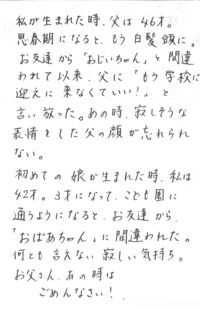 私が生まれた時、父は46才。
思春期になると、もう白髪頭に。
お友達から「おじいちゃん」と間違
われて以来、父に「もう学校に
迎えに来なくていい!」と
言い放った。あの時、寂しそうな
表情をした父の顔が忘れられ
ない。
初めての娘が生まれた時、私は
42才。3才になって、こども園に
通うようになると、お友達から、
「おばあちゃん」に間違われた。
何とも言えない寂しい気持ち。
お父さん、あの時は
ごめんなさい!